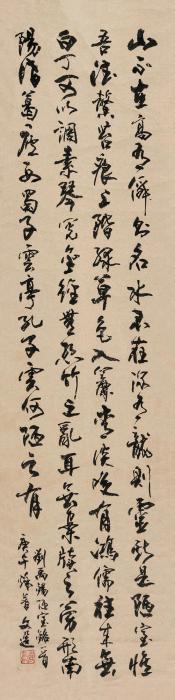 山不在高有仙則名水不在深有龍則靈斯是陋室惟
吾德馨苔痕上階綠草色入簾青談笑有鴻儒往來無
白丁可以調素琴閱金經無絲竹之亂耳無案牘之勞形南
陽諸葛廬西蜀子雲亭孔子云何陋之有
劉禹錫陋室銘一首
庚午